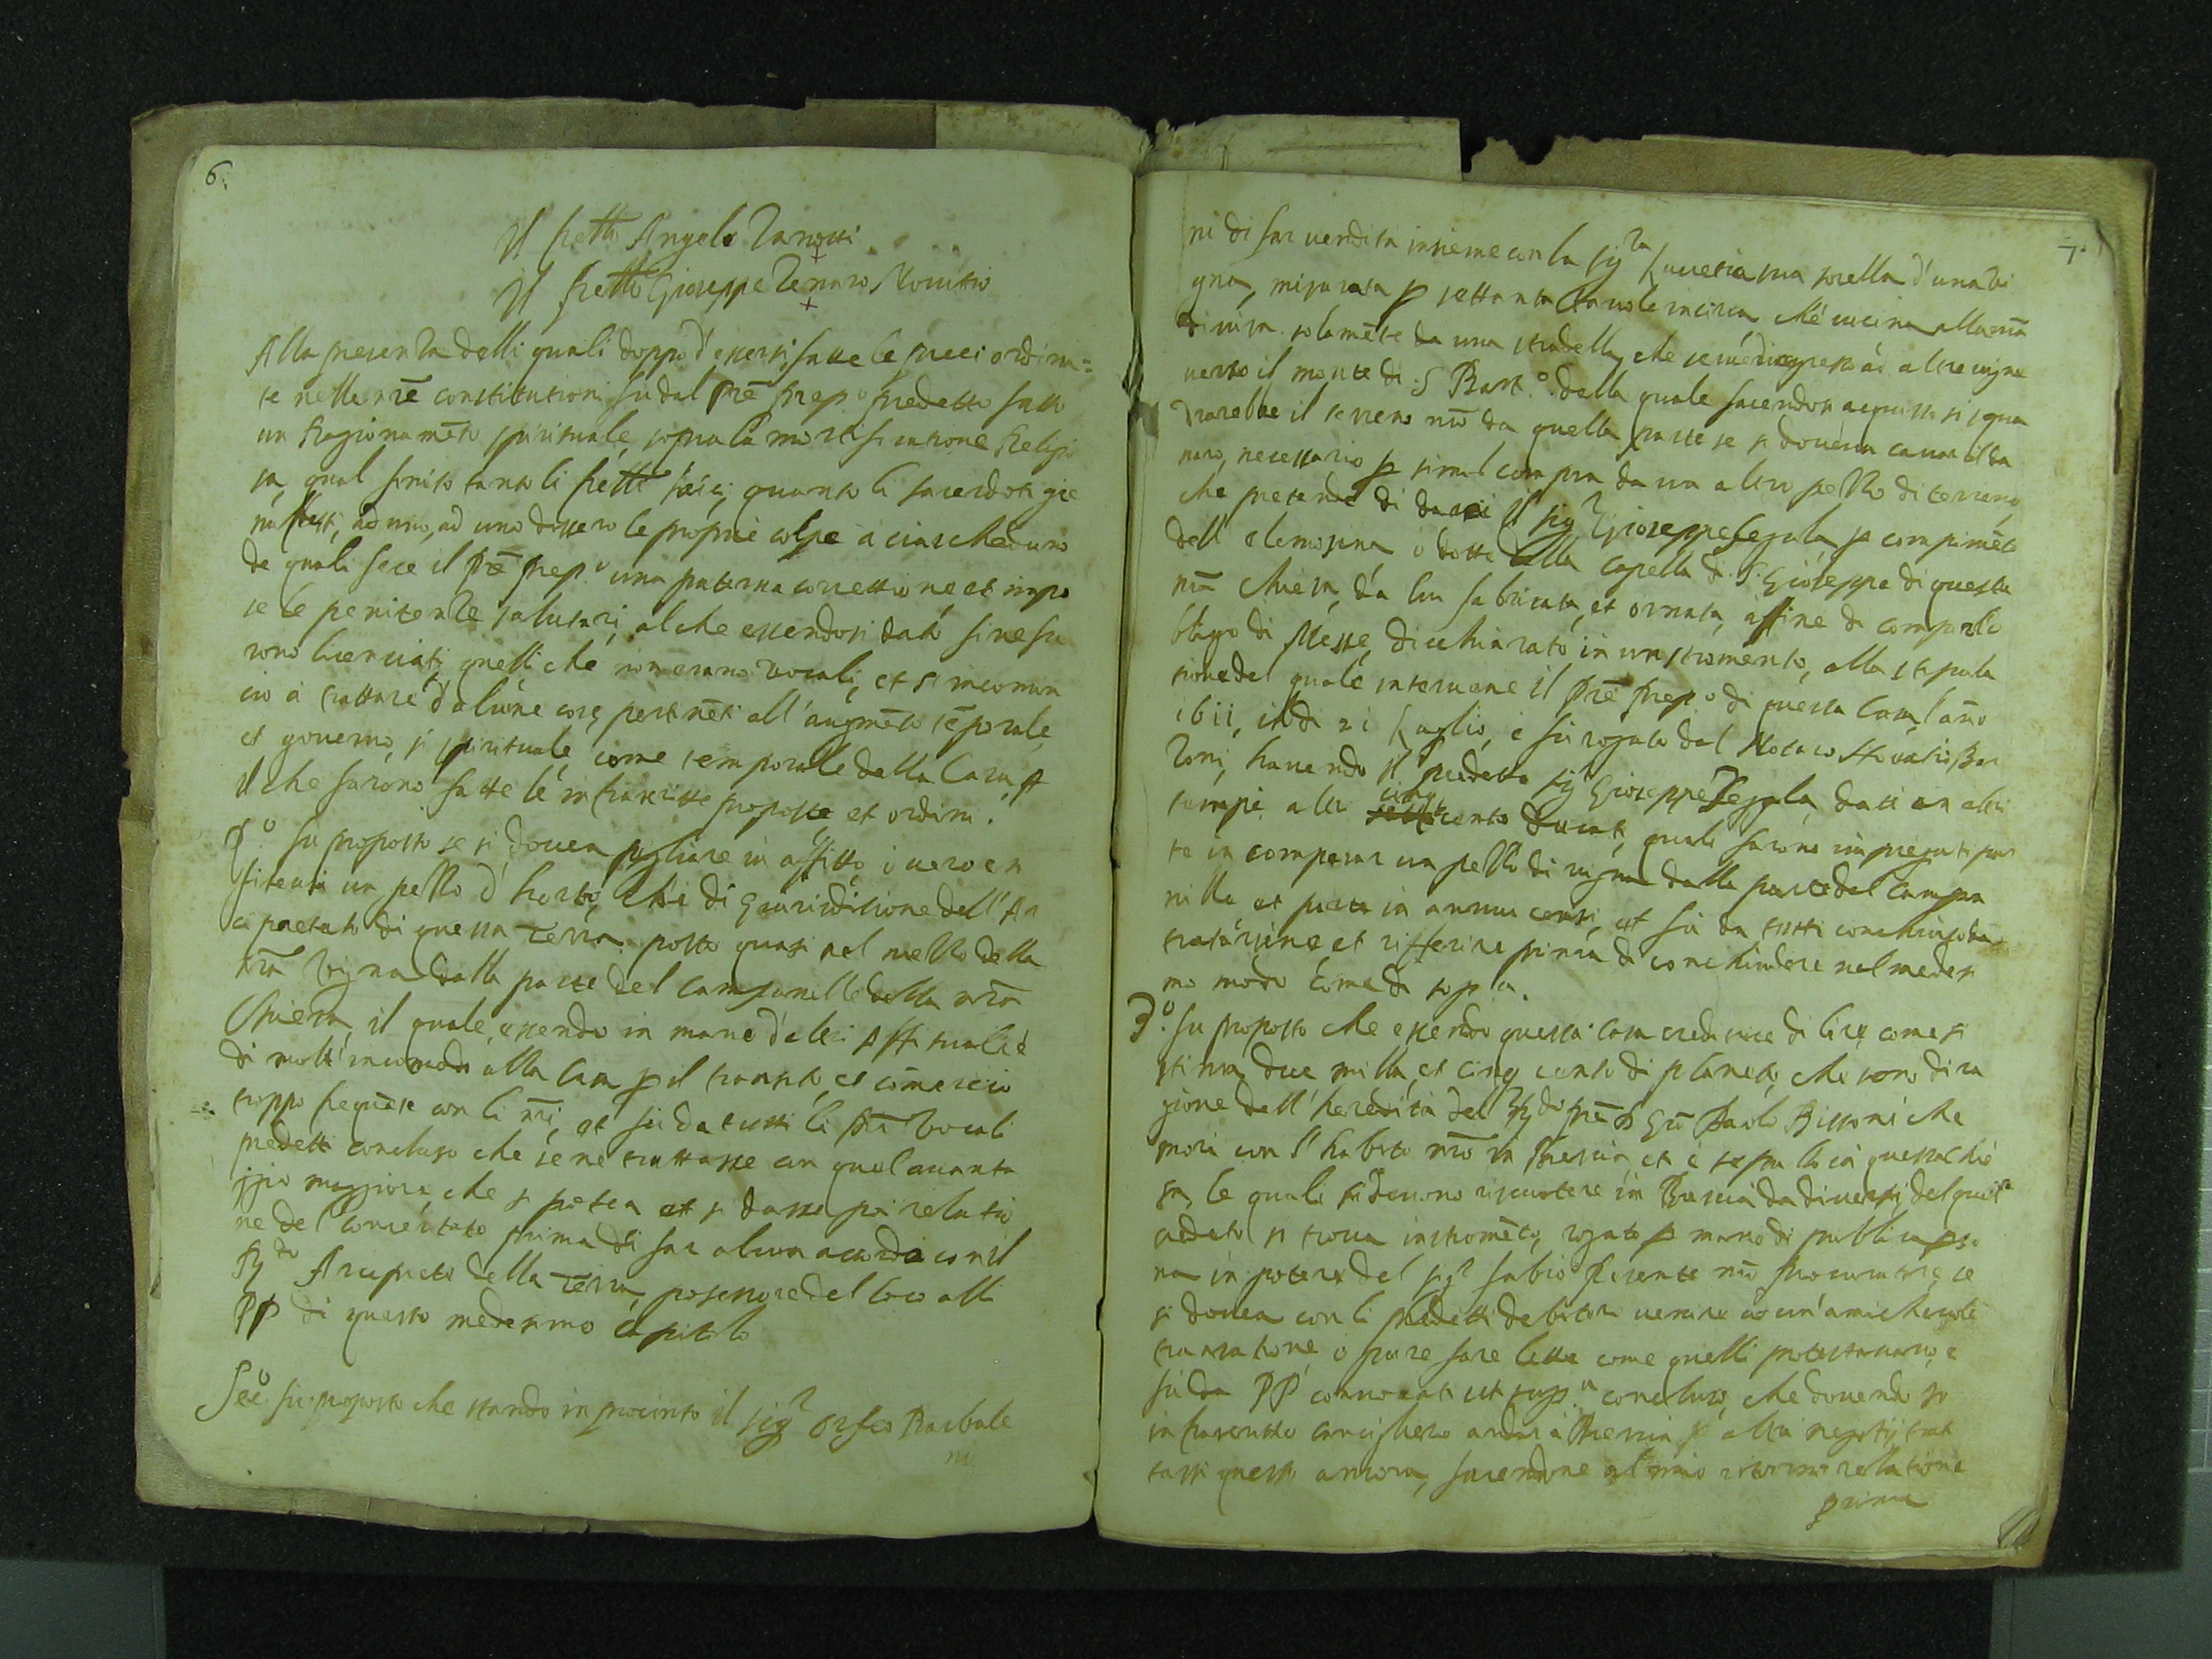 6.
Il fretto Angelo Zanotti
Il fretto Gioseppe Zenaro Novitio
Alla presenza delli quali doppo d'essersi fatte le preci ordina=
te nelle nrē constitutioni fu dal Prē Prep.o predetto fatto
un Ragionamēto spirituale, sopra la mortificatione Religio
sa, qual finito tanto li frētti laici, quanto li sacerdoti gie
nuflessi, ad uno, ad uno dissero le proprie colpe a ciascheduno
de quali fece il Prē Prep.o una paterna correttione et impo
se le penitenze salutari, al che essendosi dato fine fu
rono licenciati quelli che non erano vocali, et s'incomin
ciò a trattare d'alcune cose pertinēti all'augmēto tēporale
et governo, sì spirituale come temporale della Casa, et
il che furono fatte le infrascritte proposte et ordini.
P.o fu proposto se si dovea pigliare in affitto, o vero en
fiteusi un pezzo d'horto, che è di Giurisditione dell'Ar
cipretato di questa Terra posto quasi nel mezzo della
nrā vigna dalla parte del Campanille della nrā
Chiesa, il quale essendo in mano d'altri Affittuali è
di molt'incomodo alla Casa p il transito, et cōmercio
troppo frequēte con li nri, et fu da tutti li PP vocali
predetti concluso che se ne trattasse con quel avanta
ggio maggiore, che si potea et si dasse poi relatio
ne del concertato prima di far alcun accordo con il
R.do Arciprete della Terra, possessore del loco alli
PP di questo medesimo Capitolo
Sec.o fu proposto che stando in procinto il sig.r Orfeo Barbale
ni
7.
ni di far vendita insieme con la sig.ra Lucretia sua sorella d'una vi
gna, misurata p settanta tavole incirca che è vicina alla nrā
divisa solamēte da una stradella, che serve d'ingresso ad altre vigne
verso il monte di S. Bart.o della quale facendosi acquisto si squa
drarebbe il terreno nrō da quella parte se si doveva cavar il da
naro, necessario p simil compra da un altro pezzo di terreno,
che pretende di darci il sig.r Gioseppe Segala, p compimēto
dell'elemosina o dotte della Capella di S. Gioseppe di questa
nrā Chiesa, da lui fabricata, et ornata, affine di compirlo
bligo di Messe, dicchiarato in un stromento, alla stipula
tione del quale intervene il Prē Prep.o di questa Casa l'año
il di 21 Luglio, e fu rogato dal Notaro Horatio Bar
zoni, havendo il predetto sig.r Gioseppe Segala, dati in altri
tempi altri cinq cento ducati, quali furono impiegati par
te in comperar un pezzo di vigna dalla parte del Campa
nille, et parte in annui censi, et fu da tutti conchiuso da
tratarsene, et rifferire prima di conchiudere nel medesi
mo modo come di sopra.
3.o fu proposto che essendo questa Casa creditrice di lire, come si
stima, due milla, et cinq cento di planetto, che sono di ra
gione dell'heredità del R.do Prē D. Giō Paolo Bissoni che
morì con l'habito nrō in Brescia et è sepolto in questa chie
sa, le quali si devono riscuotere in Brescia da diversi, del qual
credito si trova instromēto, rogato p mano di publica pso
na in potere del sig.r Fabio Pesente nrō Procuratore, se
si dovea con li predetti debitori venire ad un'amichevole
transatione, o pure fare lite come quelli protestavano, e
fu da PP convocati ut sup.a concluso, che dovendo io
infrascritto cancigliero andar a Brescia p altri negotij trat
tassi questo ancora, facendone al mio ritorno rellatione
prima